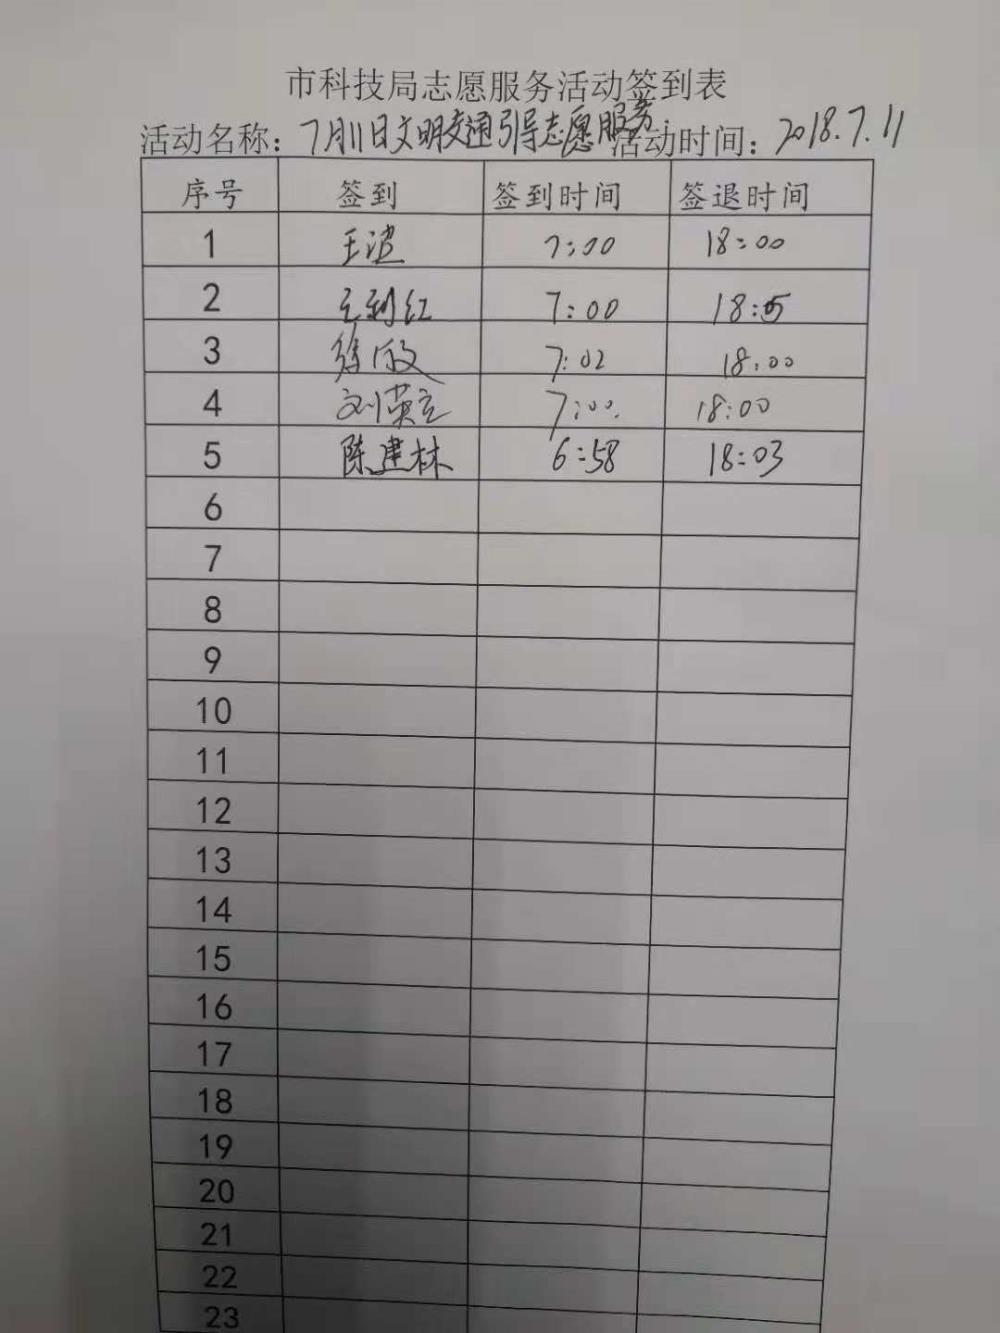 市科技局志愿服务活动签到表
活动名称：7月11日文明交通引导志愿服务 活动时间：2018.7.11
序号 签到 签到时间 签退时间
1 王 7:00 18:00
2 王利红 7:00 18:05
3 徐 7:02 18:00
4 刘英立 7:00. 18:00
5 陈建林 6:58 18:03
6
7
8
9
10
11
12
13
14
15
16
17
18
19
20
21
22
23